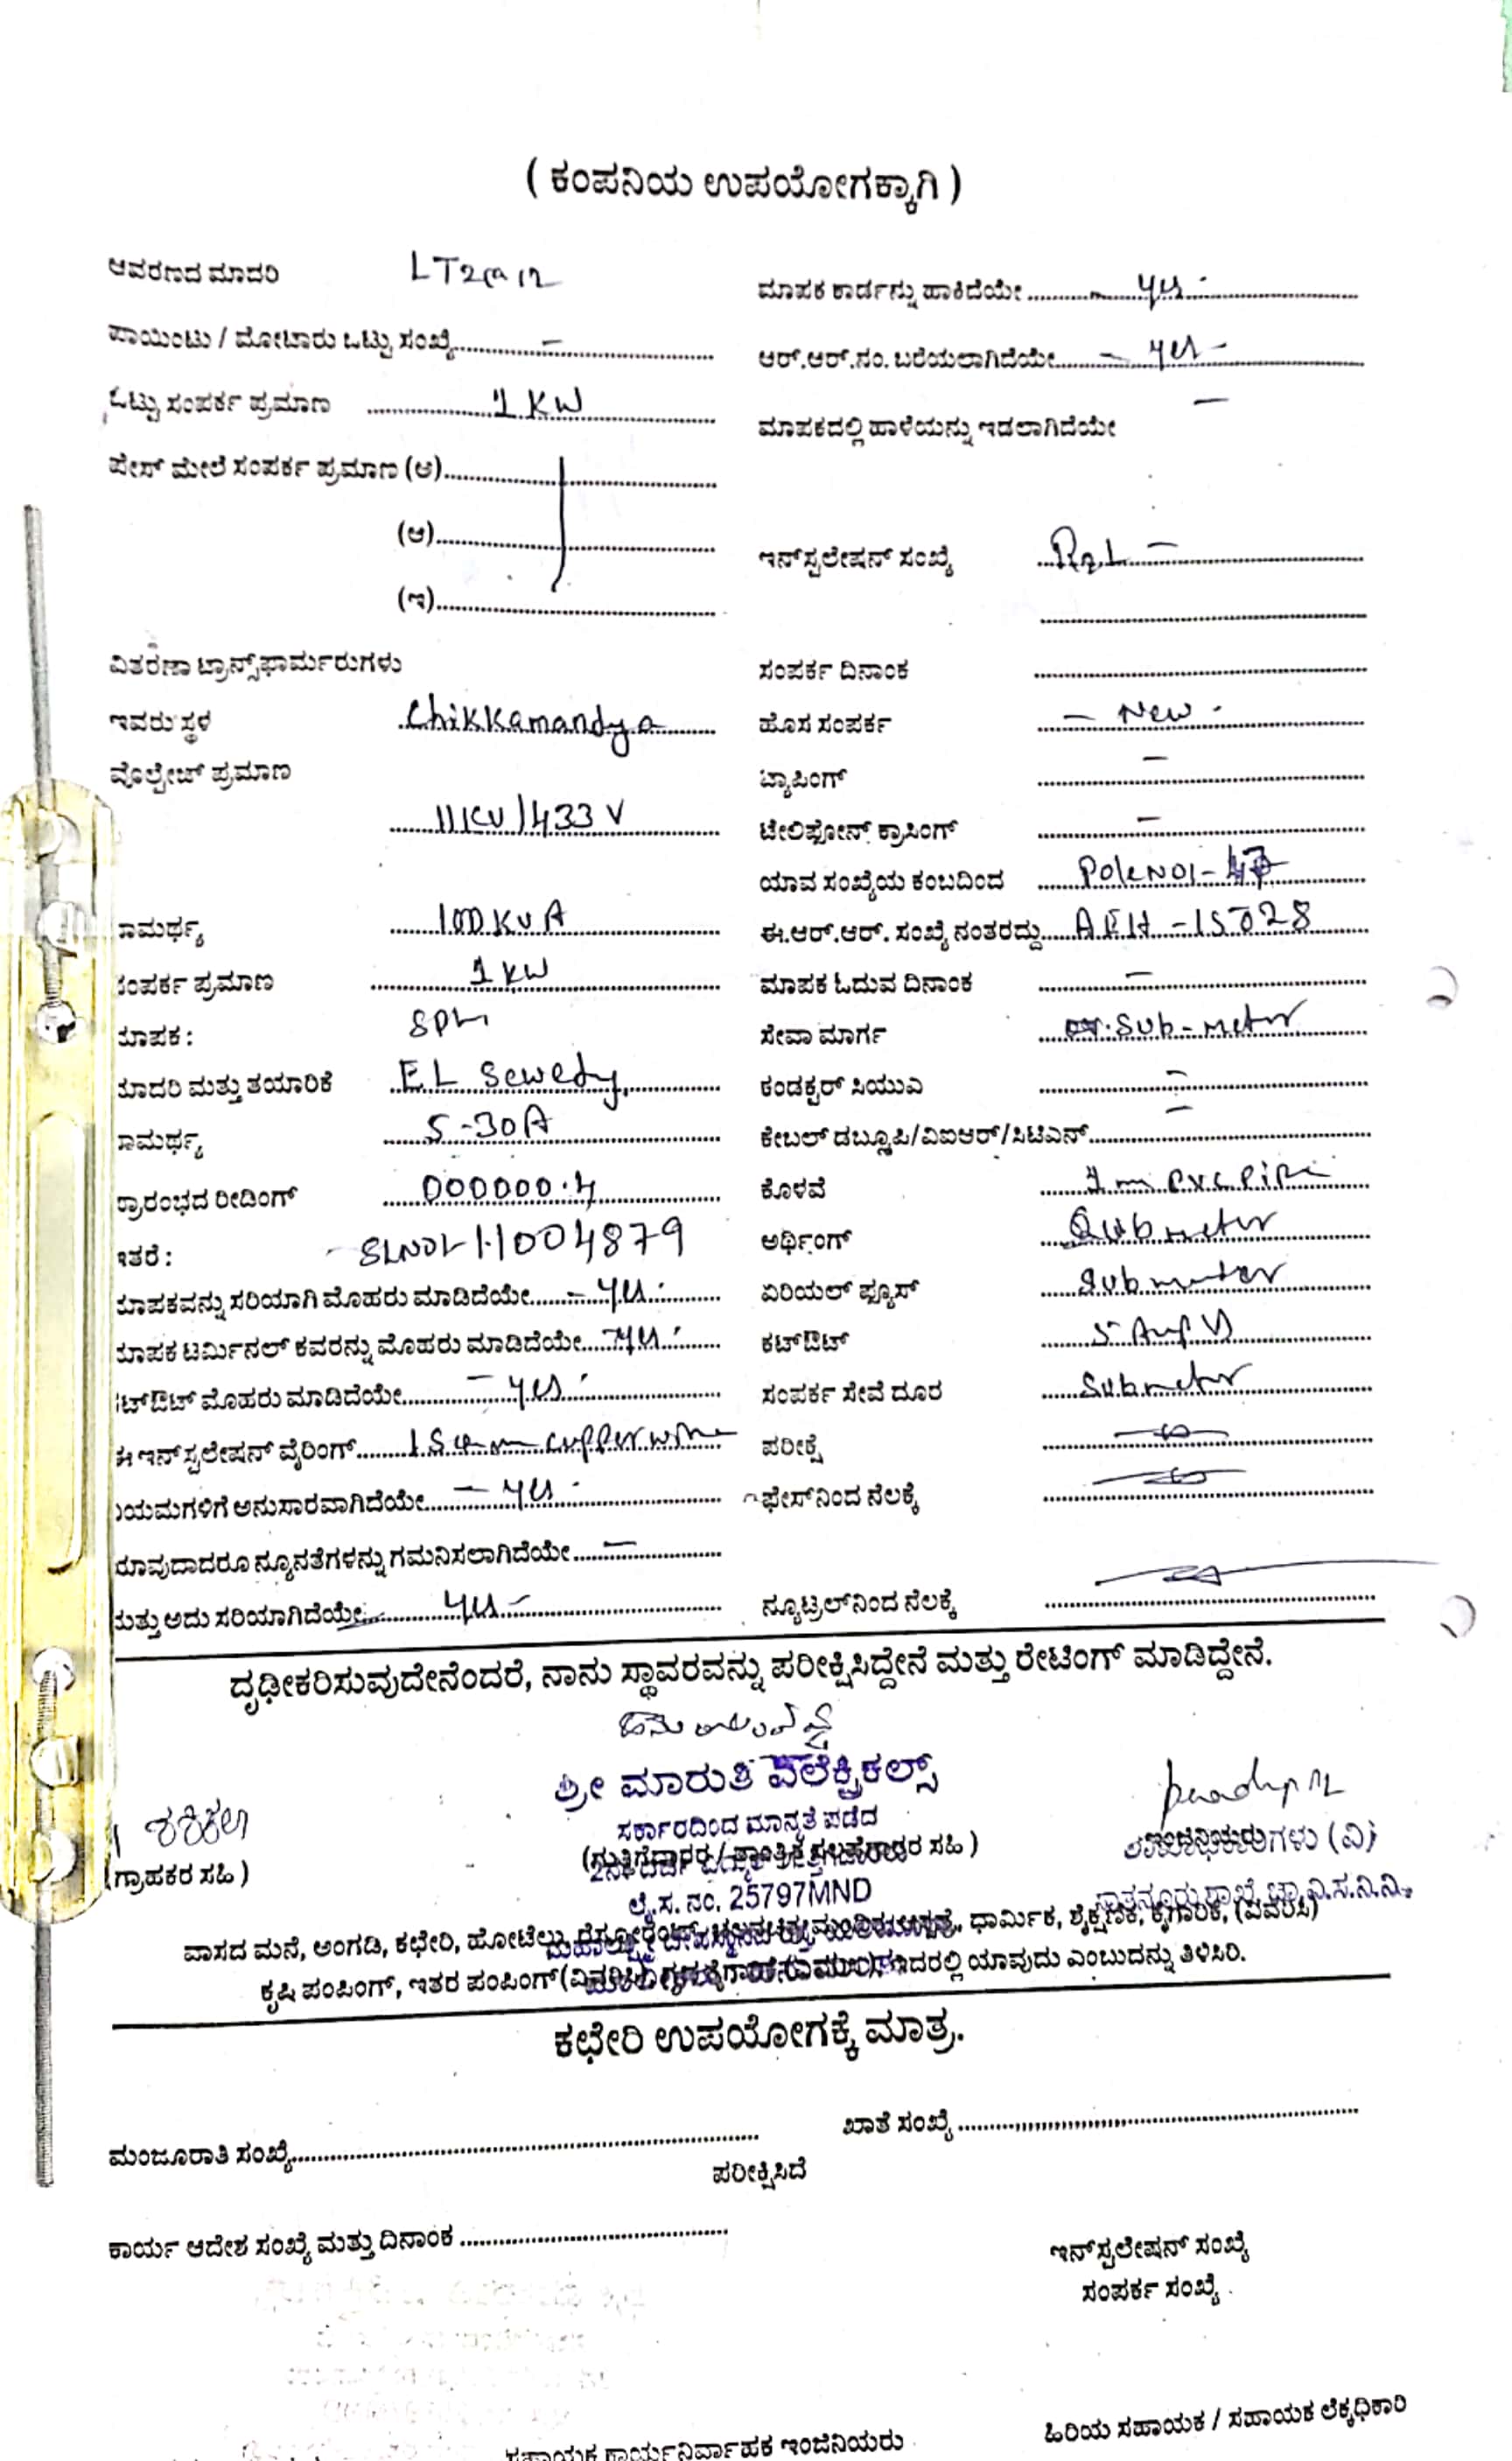 ( ಕಂಪನಿಯ ಉಪಯೋಗಕ್ಕಾಗಿ )
ಆವರಣದ ಮಾದರಿ
ಪಾಯಿಂಟು / ಮೋಟಾರು ಒಟ್ಟು ಸಂಖ್ಯೆ.......... –
ಒಟ್ಟು ಸಂಪರ್ಕ ಪ್ರಮಾಣ .......... 1 KW
ಪೇಸ್ ಮೇಲೆ ಸಂಪರ್ಕ ಪ್ರಮಾಣ (ಅ)..........
(ಆ)..........
(ಇ)..........
ವಿತರಣಾ ಟ್ರಾನ್ಸ್‌ಫಾರ್ಮರುಗಳು
ಇವರು ಸ್ಥಳ Chikkamandya
ವೊಲ್ಟೇಜ್ ಪ್ರಮಾಣ
11KV/433 V
ಾಮರ್ಥ್ಯ 100 KVA
ಸಂಪರ್ಕ ಪ್ರಮಾಣ 1 KW
ಮಾಪಕ :
ಮಾದರಿ ಮತ್ತು ತಯಾರಿಕೆ EL Sewedy
ಾಮರ್ಥ್ಯ 5-30A
ಪ್ರಾರಂಭದ ರೀಡಿಂಗ್ 000000.4
ಇತರೆ : 11004879
ಮಾಪಕವನ್ನು ಸರಿಯಾಗಿ ಮೊಹರು ಮಾಡಿದೆಯೇ.......... – yes
ಮಾಪಕ ಟರ್ಮಿನಲ್ ಕವರನ್ನು ಮೊಹರು ಮಾಡಿದೆಯೇ.......... yes
ಟ್‌ಔಟ್ ಮೊಹರು ಮಾಡಿದೆಯೇ.......... – yes
ಈ ಇನ್‌ಸ್ಟಲೇಷನ್ ವೈರಿಂಗ್.......... copper wire
ಯಮಗಳಿಗೆ ಅನುಸಾರವಾಗಿದೆಯೇ.......... – yes
ಯಾವುದಾದರೂ ನ್ಯೂನತೆಗಳನ್ನು ಗಮನಿಸಲಾಗಿದೆಯೇ.......... –
ಮತ್ತು ಅದು ಸರಿಯಾಗಿದೆಯೇ.......... yes –
ಮಾಪಕ ಕಾರ್ಡನ್ನು ಹಾಕಿದೆಯೇ.......... – yes
ಆರ್.ಆರ್.ನಂ. ಬರೆಯಲಾಗಿದೆಯೇ.......... – yes –
ಮಾಪಕದಲ್ಲಿ ಹಾಳೆಯನ್ನು ಇಡಲಾಗಿದೆಯೇ –
ಇನ್‌ಸ್ಟಲೇಷನ್ ಸಂಖ್ಯೆ
ಸಂಪರ್ಕ ದಿನಾಂಕ
ಹೊಸ ಸಂಪರ್ಕ – New
ಟ್ಯಾಪಿಂಗ್ –
ಟೇಲಿಫೋನ್ ಕ್ರಾಸಿಂಗ್ –
ಯಾವ ಸಂಖ್ಯೆಯ ಕಂಬದಿಂದ
ಈ.ಆರ್.ಆರ್. ಸಂಖ್ಯೆ ನಂತರದ್ದು.......... AEH -15028
ಮಾಪಕ ಓದುವ ದಿನಾಂಕ –
ಸೇವಾ ಮಾರ್ಗ Sub-meter
ಕಂಡಕ್ಟರ್ ಸಿಯುಎ –
ಕೇಬಲ್ ಡಬ್ಲೂಪಿ/ವಿಐಆರ್/ಸಿಟಿಎನ್.......... –
ಕೊಳವೆ pvc pipe
ಅರ್ಥಿಂಗ್ Submeter
ಏರಿಯಲ್ ಫ್ಯೂಸ್ Submeter
ಕಟ್‌ಔಟ್
ಸಂಪರ್ಕ ಸೇವೆ ದೂರ Submeter
ಪರೀಕ್ಷೆ
ಫೇಸ್‌ನಿಂದ ನೆಲಕ್ಕೆ
ನ್ಯೂಟ್ರಲ್‌ನಿಂದ ನೆಲಕ್ಕೆ
ದೃಢೀಕರಿಸುವುದೇನೆಂದರೆ, ನಾನು ಸ್ಥಾವರವನ್ನು ಪರೀಕ್ಷಿಸಿದ್ದೇನೆ ಮತ್ತು ರೇಟಿಂಗ್ ಮಾಡಿದ್ದೇನೆ.
ಶ್ರೀ ಮಾರುತಿ ಎಲೆಕ್ಟ್ರಿಕಲ್ಸ್
ಸರ್ಕಾರದಿಂದ ಮಾನ್ಯತೆ ಪಡೆದ
ಶಶಿಕಲಾ
(ಗ್ರಾಹಕರ ಸಹಿ )
(ಗುತ್ತಿಗೆದಾರರ / ತಾಂತ್ರಿಕ ಸಲಹೆಗಾರರ ಸಹಿ )
ಇಂಜಿನಿಯರು
ಲೈ.ಸ. ನಂ. 25797MND
ವಾಸದ ಮನೆ, ಅಂಗಡಿ, ಕಛೇರಿ, ಹೋಟೆಲು, ಧಾರ್ಮಿಕ, ಶೈಕ್ಷಣಿಕ, ಕೈಗಾರಿಕೆ, (ವಿವರಿಸಿ)
ಕೃಷಿ ಪಂಪಿಂಗ್, ಇತರ ಪಂಪಿಂಗ್ ಇದರಲ್ಲಿ ಯಾವುದು ಎಂಬುದನ್ನು ತಿಳಿಸಿರಿ.
ಕಛೇರಿ ಉಪಯೋಗಕ್ಕೆ ಮಾತ್ರ.
ಮಂಜೂರಾತಿ ಸಂಖ್ಯೆ.......... ಖಾತೆ ಸಂಖ್ಯೆ..........
ಪರೀಕ್ಷಿಸಿದೆ
ಕಾರ್ಯ ಆದೇಶ ಸಂಖ್ಯೆ ಮತ್ತು ದಿನಾಂಕ ..........
ಇನ್‌ಸ್ಟಲೇಷನ್ ಸಂಖ್ಯೆ
ಸಂಪರ್ಕ ಸಂಖ್ಯೆ
ಹಿರಿಯ ಸಹಾಯಕ / ಸಹಾಯಕ ಲೆಕ್ಕಧಿಕಾರಿ
ಸಹಾಯಕ ಕಾರ್ಯನಿರ್ವಾಹಕ ಇಂಜಿನಿಯರು